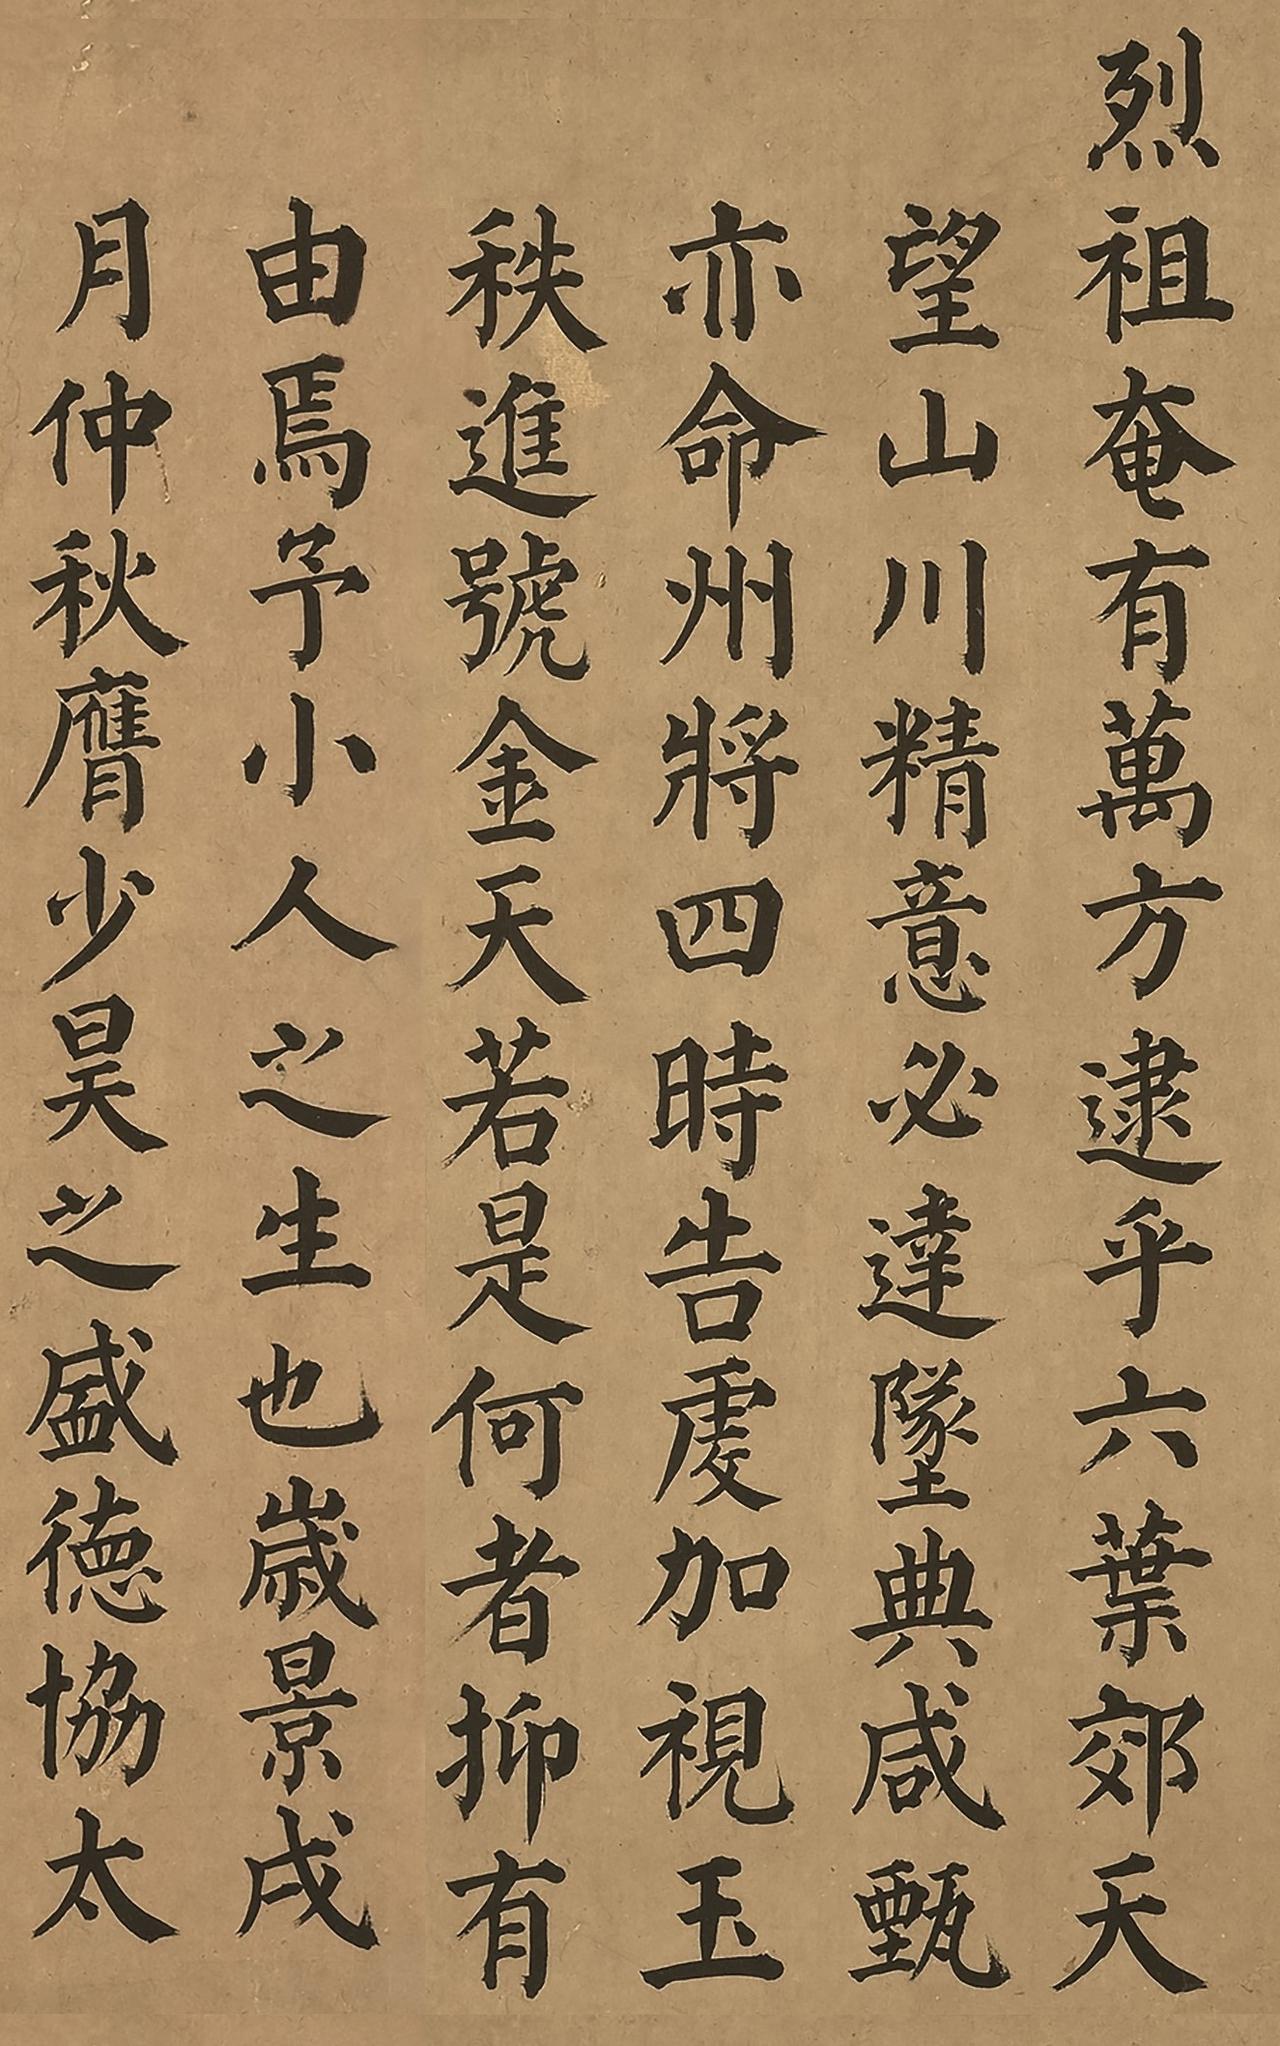 烈祖奄有萬方逮乎六葉郊天
望山川精意必達墜典咸甄
亦命州將四時告虔加視王
秩進號金天若是何者抑有
由焉予小人之生也歲景戌
月仲秋膺少昊之盛德協太